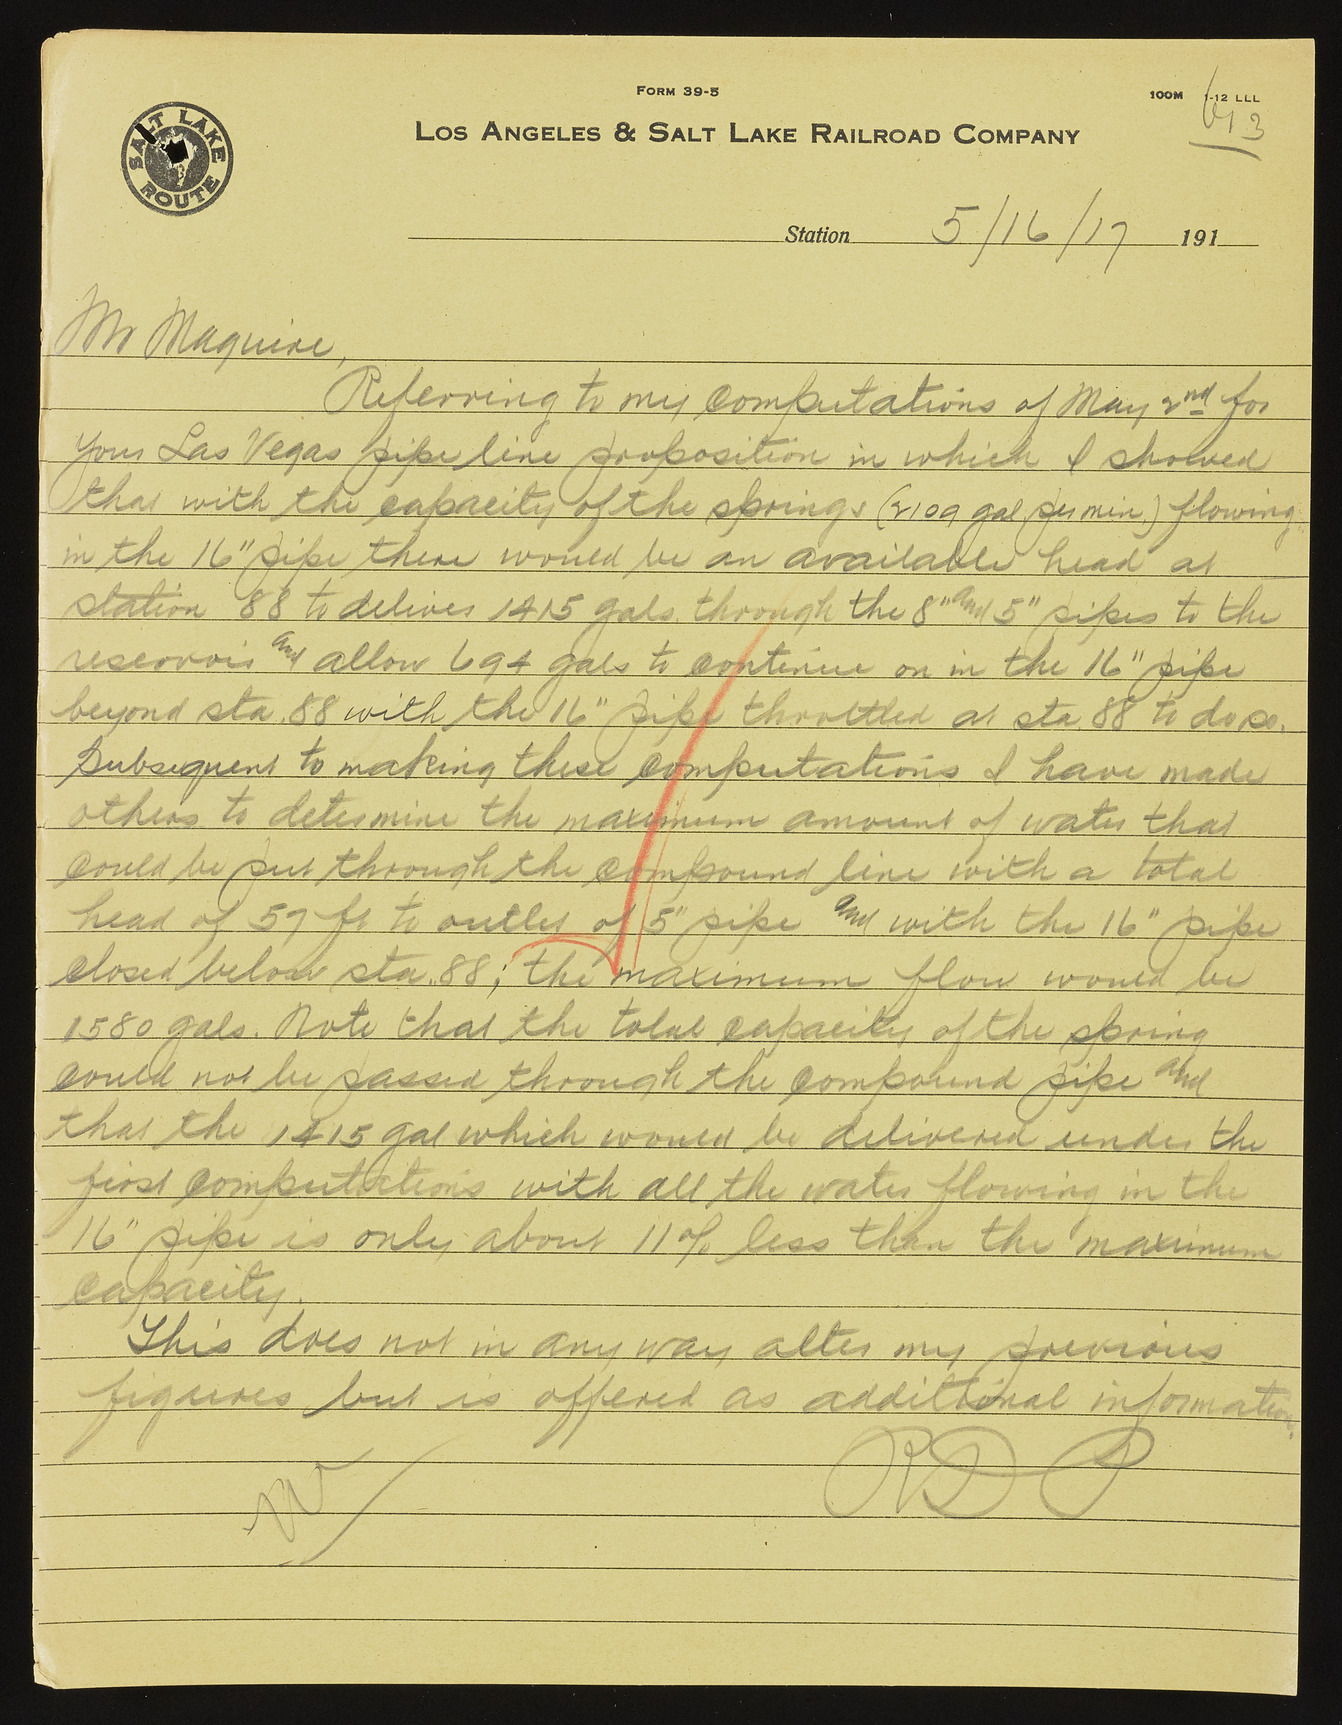 FORM 39-5
100M 1-12 LLL
W13
LOS ANGELES & SALT LAKE RAILROAD COMPANY
SALT LAKE ROUTE
Station 5/16/17 191
Mr Maguire,
Referring to my computations of May 2nd for
your Las Vegas pipe line proposition in which I showed
that with the capacity of the springs (2109 gal per min.) flowing
in the 16" pipe there would be an available head at
station 88 to deliver 1415 gals. through the 8" and 5" pipes to the
reservoir and allow 694 gals to continue on in the 16" pipe
beyond sta. 88 with the 16" pipe throttled at sta 88 to do so.
Subsequent to making these computations I have made
others to determine the maximum amount of water that
could be put through the compound line with a total
head of 57 ft to outlet of 5" pipe and with the 16" pipe
closed below sta. 88; the maximum flow would be
1580 gals. Note that the total capacity of the spring
could not be passed through the compound pipe and
that the 1415 gal which would be delivered under the
first computations with all the water flowing in the
16" pipe is only about 11% less than the maximum
capacity.
This does not in any way alter my previous
figures but is offered as additional information.
RDP